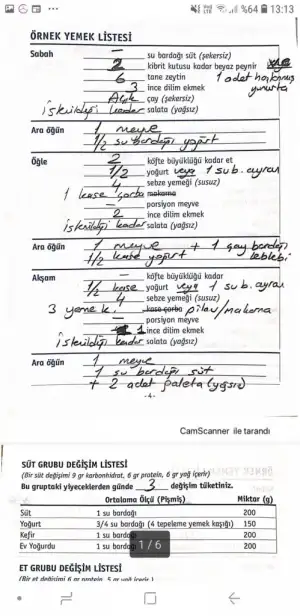 %64 13:13
ÖRNEK YEMEK LİSTESİ
Sabah — su bardağı süt (şekersiz)
2 kibrit kutusu kadar beyaz peynir
6 tane zeytin 1 adet haşlanmış yumurta
3 ince dilim ekmek
Açık çay (şekersiz)
istenildiği kadar salata (yağsız)
Ara öğün 1 meyve
1/2 su bardağı yoğurt
Öğle 2 köfte büyüklüğü kadar et
1/2 yoğurt veya 1 su b. ayran
4 sebze yemeği (susuz)
1 kase çorba makarna
— porsiyon meyve
2 ince dilim ekmek
istenildiği kadar salata (yağsız)
Ara öğün 1 meyve + 1 çay bardağı
1/2 kase yoğurt leblebi
Akşam — köfte büyüklüğü kadar
1/2 kase yoğurt veya 1 su b. ayran
4 sebze yemeği (susuz)
3 yemek k. kase çorba pilav/makarna
porsiyon meyve
1 ince dilim ekmek
istenildiği kadar salata (yağsız)
Ara öğün 1 meyve
1 su bardağı süt
+ 2 adet galeta (yağsız)
-4-
CamScanner ile tarandı
SÜT GRUBU DEĞİŞİM LİSTESİ
(Bir süt değişimi 9 gr karbonhidrat, 6 gr protein, 6 gr yağ içerir)
Bu gruptaki yiyeceklerden günde 3 değişim tüketiniz.
Ortalama Ölçü (Pişmiş) Miktar (g)
Süt 1 su bardağı 200
Yoğurt 3/4 su bardağı (4 tepeleme yemek kaşığı) 150
Kefir 1 su bardağı 200
Ev Yoğurdu 1 su bardağı 200
1 / 6
ET GRUBU DEĞİŞİM LİSTESİ
(Bir et değişimi 6 gr protein, 5 gr yağ içerir)